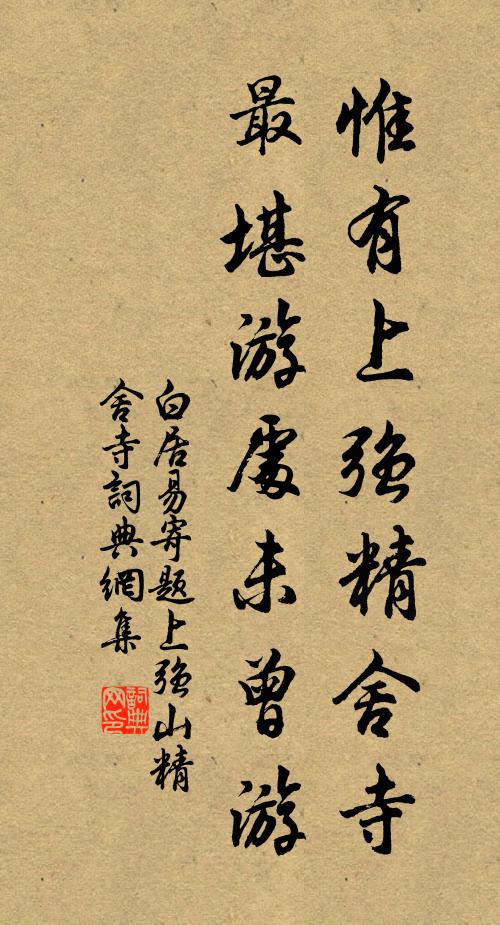 惟有上強精舍寺
最堪游處未曾游
白居易寄題上強山精
舍寺詞典網集
詞典
网印